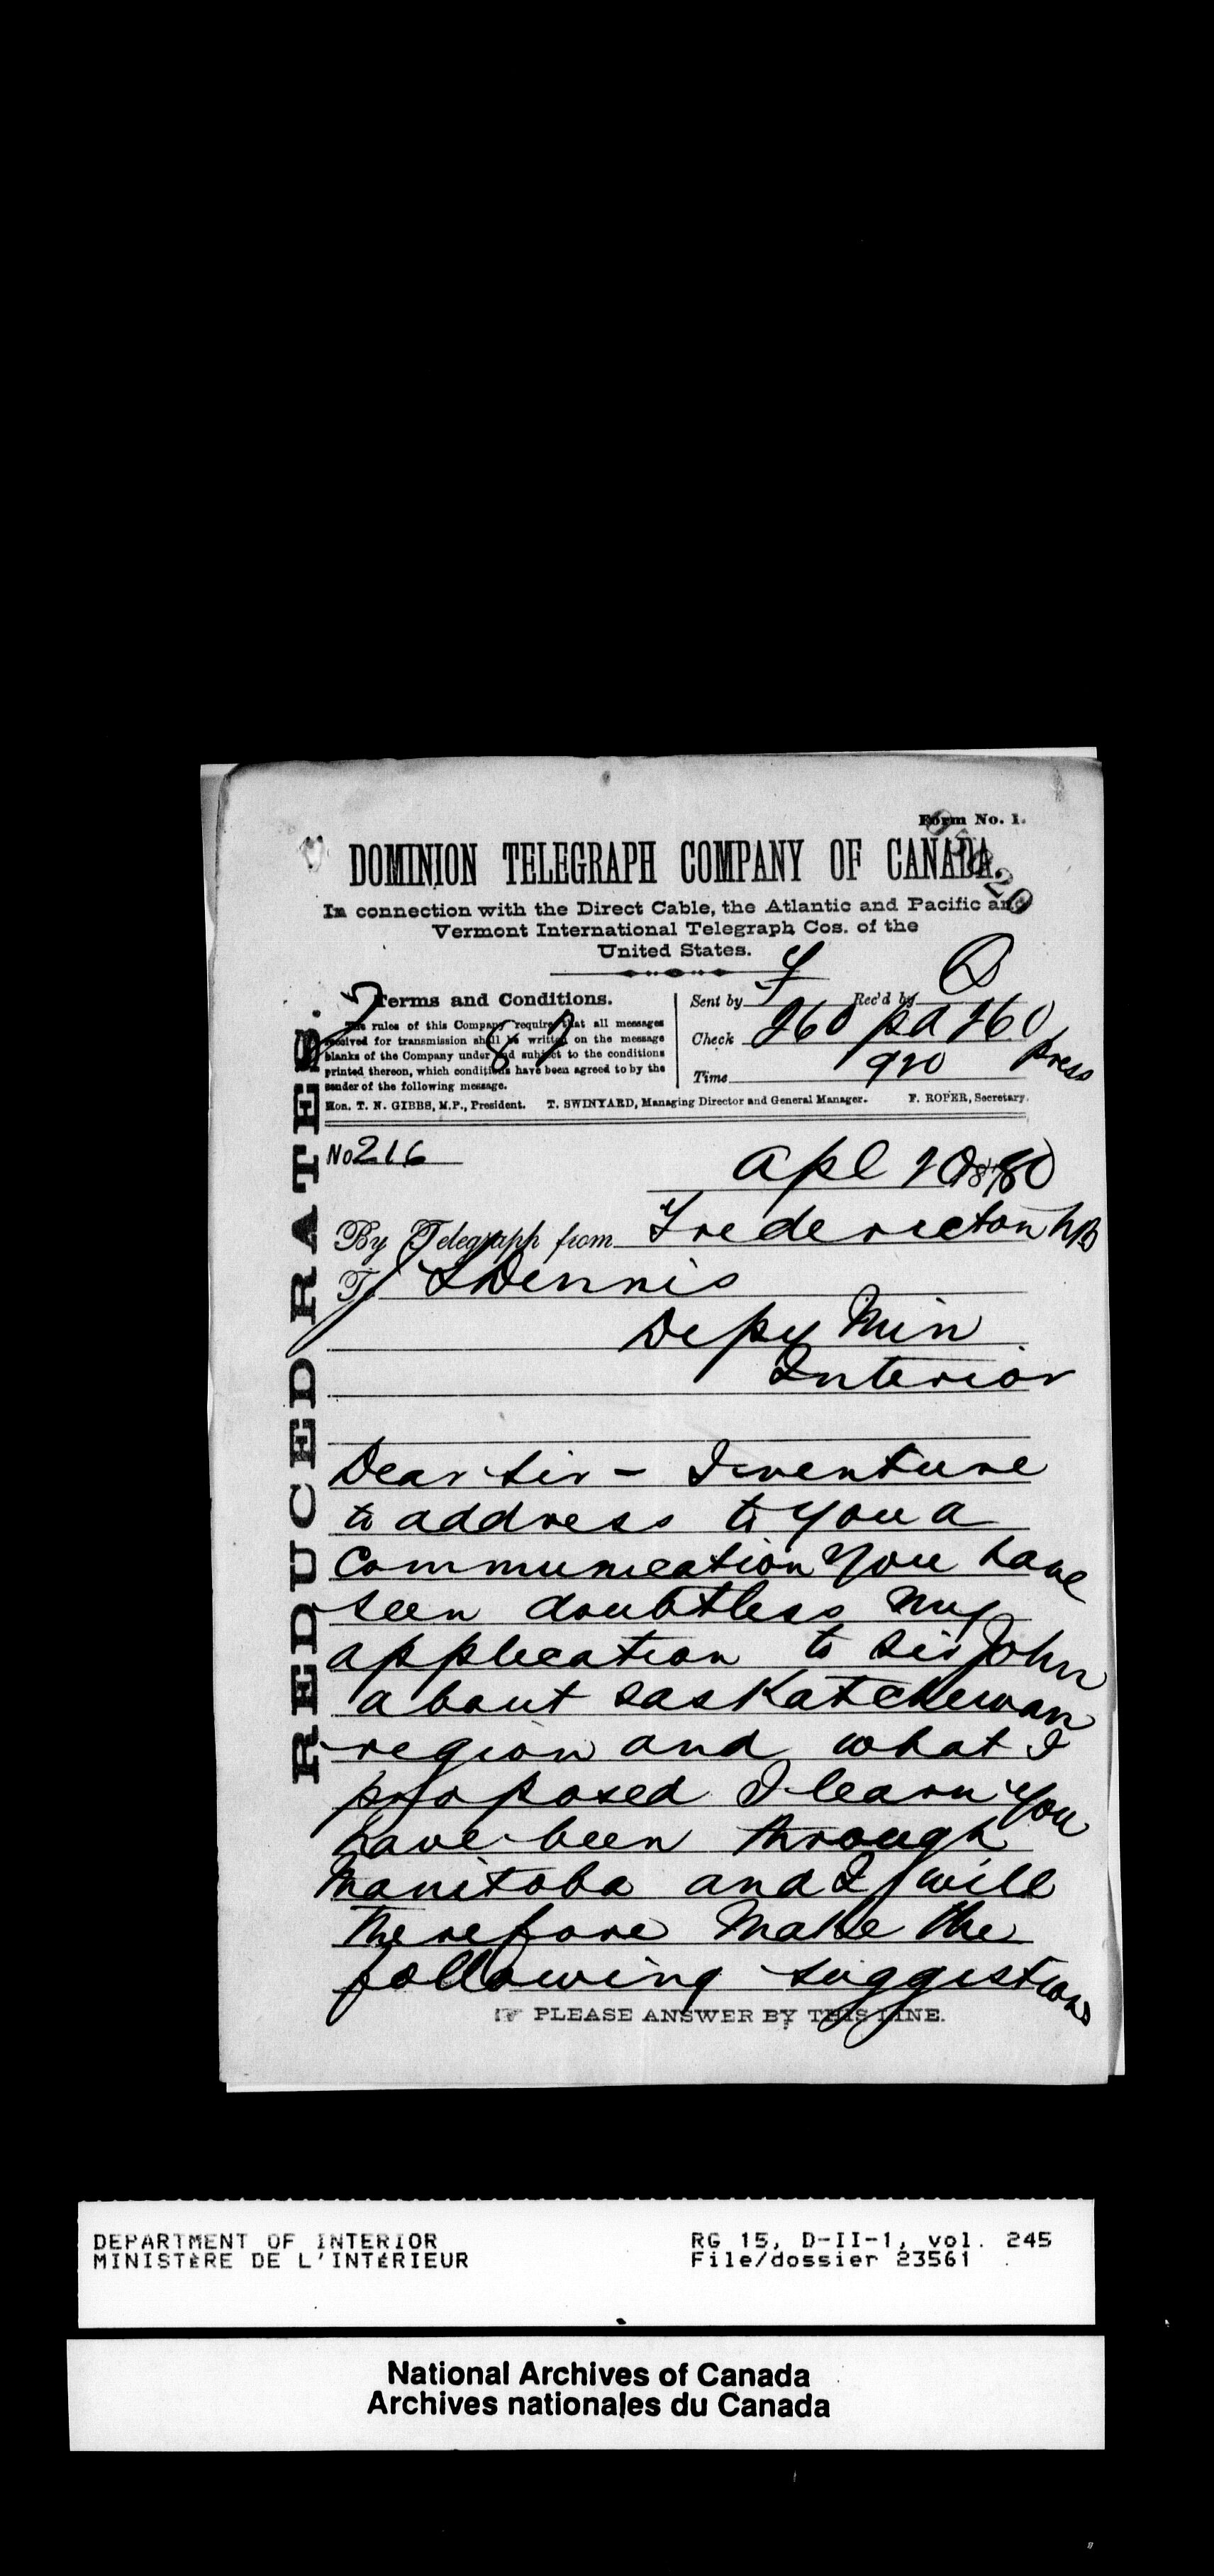 Form No. 1.
DOMINION TELEGRAPH COMPANY OF CANADA.
In connection with the Direct Cable, the Atlantic and Pacific and
Vermont International Telegraph Cos. of the
United States.
Terms and Conditions.
The rules of this Company require that all messages
received for transmission shall be written on the message
blanks of the Company under and subject to the conditions
printed thereon, which conditions have been agreed to by the
sender of the following message.
87
Sent by Rec'd by
Check 260 pd 260
press
Time 920
Hon. T. N. GIBBS, M.P., President. T. SWINYARD, Managing Director and General Manager. F. ROPER, Secretary.
REDUCED RATES.
No 216
Apl 20 1880
By Telegraph from Fredericton NB
To J S Dennis
Depy Min
Interior
Dear Sir - I venture
to address to you a
communication you have
seen doubtless my
application to Sir John
about Saskatchewan
region and what I
proposed I learn you
have been through
Manitoba and I will
therefore make the
following suggestions
PLEASE ANSWER BY THIS LINE.
DEPARTMENT OF INTERIOR
MINISTÈRE DE L'INTÉRIEUR
RG 15, D-II-1, vol. 245
File/dossier 23561
National Archives of Canada
Archives nationales du Canada